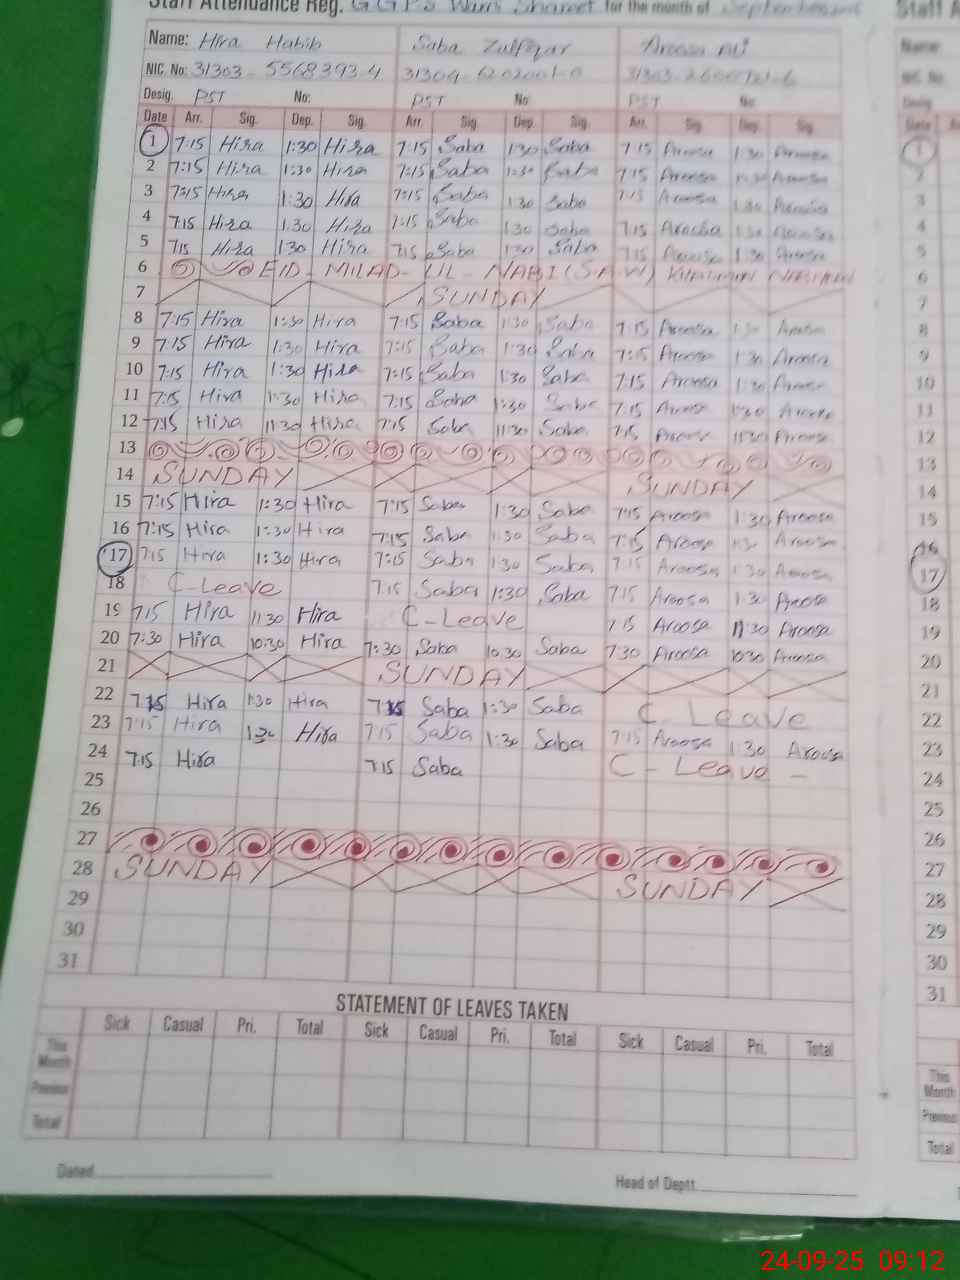 Staff Attendance Reg. for the month of September
Name: Hira Habib Saba Zulfiqar Aroosa Ali
NIC. No: 31303-5568393-4 31304-
Desig. PST No: PST No PST No
Date Arr. Sig. Dep. Sig. Arr. Sig. Dep. Sig. Arr. Sig. Dep. Sig.
1 7:15 Hira 1:30 Hira 7:15 Saba 1:30 Saba 7:15 Aroosa 1:30 Aroosa
2 7:15 Hira 1:30 Hira 7:15 Saba 1:30 Saba 7:15 Aroosa 1:30 Aroosa
3 7:15 Hira 1:30 Hira 7:15 Saba 1:30 Saba 7:15 Aroosa 1:30 Aroosa
4 7:15 Hira 1:30 Hira 7:15 Saba 1:30 Saba 7:15 Aroosa 1:30 Aroosa
5 7:15 Hira 1:30 Hira 7:15 Saba 1:30 Saba 7:15 Aroosa 1:30 Aroosa
6 EID-MILAD-UL-NABI (S.A.W)
7 SUNDAY
8 7:15 Hira 1:30 Hira 7:15 Saba 1:30 Saba 7:15 Aroosa 1:30 Aroosa
9 7:15 Hira 1:30 Hira 7:15 Saba 1:30 Saba 7:15 Aroosa 1:30 Aroosa
10 7:15 Hira 1:30 Hira 7:15 Saba 1:30 Saba 7:15 Aroosa 1:30 Aroosa
11 7:15 Hira 1:30 Hira 7:15 Saba 1:30 Saba 7:15 Aroosa 1:30 Aroosa
12 7:15 Hira 11:30 Hira 7:15 Saba 11:30 Saba 7:15 Aroosa 11:30 Aroosa
13
14 SUNDAY SUNDAY
15 7:15 Hira 1:30 Hira 7:15 Saba 1:30 Saba 7:15 Aroosa 1:30 Aroosa
16 7:15 Hira 1:30 Hira 7:15 Saba 1:30 Saba 7:15 Aroosa 1:30 Aroosa
17 7:15 Hira 1:30 Hira 7:15 Saba 1:30 Saba 7:15 Aroosa 1:30 Aroosa
18 C-Leave 7:15 Saba 1:30 Saba 7:15 Aroosa 1:30 Aroosa
19 7:15 Hira 11:30 Hira C-Leave 7:15 Aroosa 11:30 Aroosa
20 7:30 Hira 10:30 Hira 7:30 Saba 10:30 Saba 7:30 Aroosa 10:30 Aroosa
21 SUNDAY
22 7:15 Hira 1:30 Hira 7:15 Saba 1:30 Saba C Leave
23 7:15 Hira 1:30 Hira 7:15 Saba 1:30 Saba 7:15 Aroosa 1:30 Aroosa
24 7:15 Hira 7:15 Saba C-Leave -
25
26
27
28 SUNDAY SUNDAY
29
30
31
STATEMENT OF LEAVES TAKEN
Sick Casual Pri. Total Sick Casual Pri. Total Sick Casual Pri. Total
This Month
Previous
Total
Dated Head of Deptt.
Staff
Date
1
2
3
4
5
6
7
8
9
10
11
12
13
14
15
16
17
18
19
20
21
22
23
24
25
26
27
28
29
30
31
This Month
Previous
Total
24-09-25 09:12